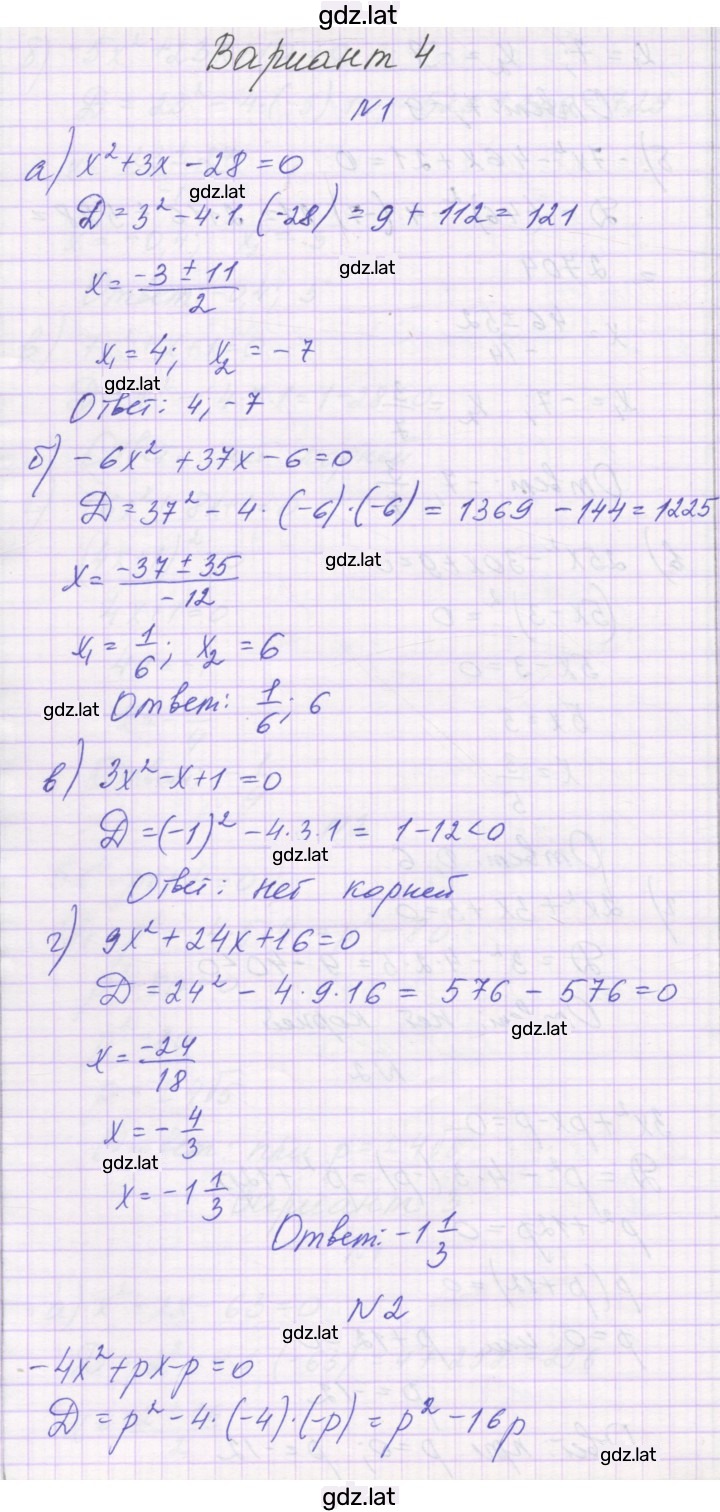 gdz.lat
Вариант 4
N1
а) x²+3x-28=0
gdz.lat
D=3²-4·1·(-28)=9+112=121
x=(-3±11)/2
gdz.lat
x₁=4; x₂=-7
gdz.lat
Ответ: 4; -7
б) -6x²+37x-6=0
D=37²-4·(-6)·(-6)=1369-144=1225
x=(-37±35)/-12
gdz.lat
x₁=1/6; x₂=6
gdz.lat
Ответ: 1/6; 6
в) 3x²-x+1=0
D=(-1)²-4·3·1=1-12<0
gdz.lat
Ответ: нет корней
г) 9x²+24x+16=0
D=24²-4·9·16=576-576=0
gdz.lat
x=-24/18
x=-4/3
gdz.lat
x=-1 1/3
Ответ: -1 1/3
N2
gdz.lat
-4x²+px-p=0
D=p²-4·(-4)·(-p)=p²-16p
gdz.lat
gdz.lat